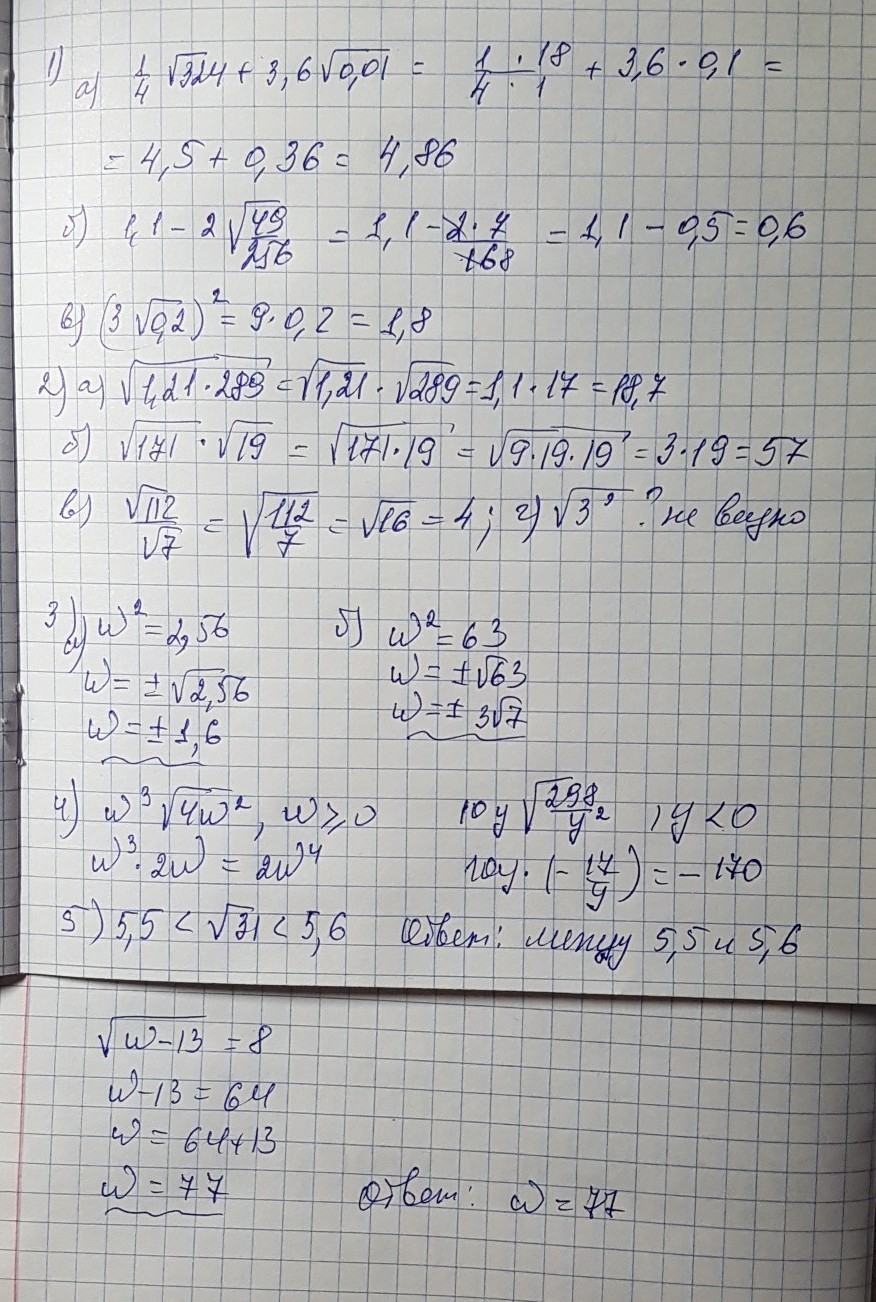 1) а) 1/4 √324 + 3,6√0,01 = 1·18/4·1 + 3,6·0,1 =
= 4,5 + 0,36 = 4,86
б) 1,1 - 2√49/256 = 1,1 - 2·7/168 = 1,1 - 0,5 = 0,6
в) (3√0,2)² = 9·0,2 = 1,8
2) а) √1,21·289 = √1,21·√289 = 1,1·17 = 18,7
б) √171·√19 = √171·19 = √9·19·19 = 3·19 = 57
в) √112/√7 = √112/7 = √16 = 4; г) √3² ? не видно
3) а) w² = 2,56 б) w² = 63
w = ±√2,56 w = ±√63
w = ±1,6 w = ± 3√7
4) w³√4w², w ≥ 0 10y√298/y², y < 0
w³·2w = 2w⁴ 10y·(-17/y) = -170
5) 5,5 < √31 < 5,6 Ответ: между 5,5 и 5,6
√w-13 = 8
w-13 = 64
w = 64+13
w = 77 Ответ: w = 77